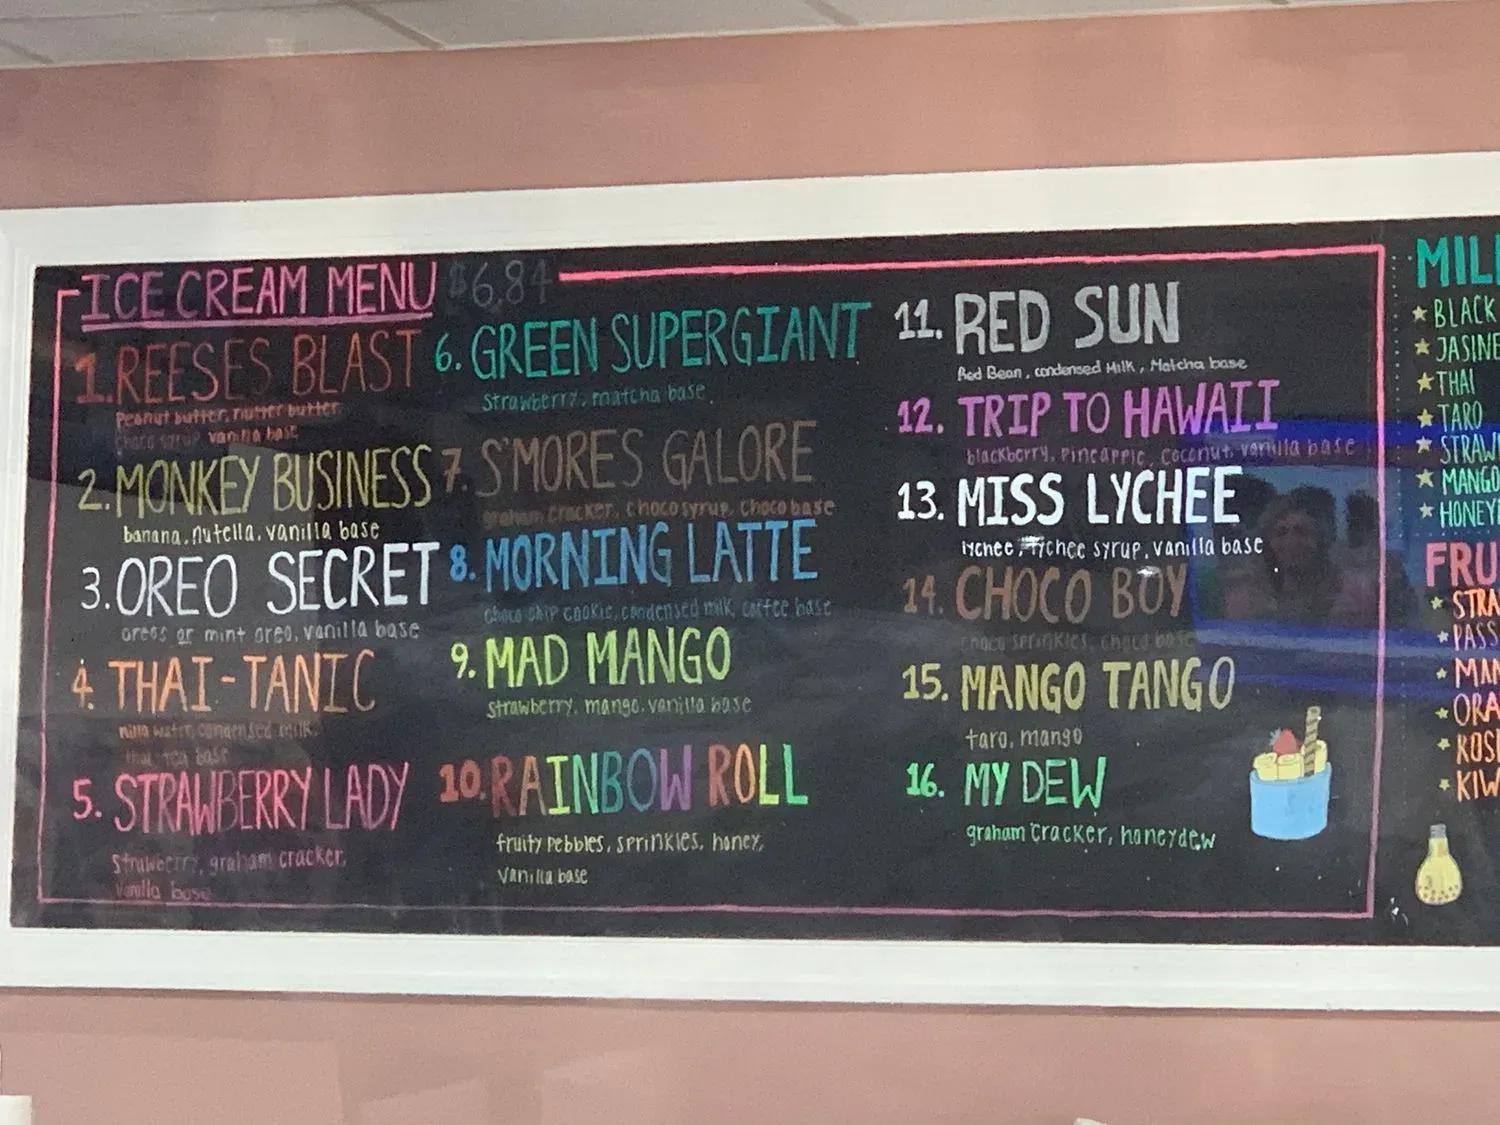 ICE CREAM MENU $6.84
1. REESES BLAST
Peanut butter, nutter butter,
choco syrup vanilla base
2. MONKEY BUSINESS
banana, nutella, vanilla base
3. OREO SECRET
oreos or mint oreo, vanilla base
4. THAI-TANIC
condensed milk,
thai tea base
5. STRAWBERRY LADY
Strawberry, graham cracker,
vanilla base
6. GREEN SUPERGIANT
Strawberry, matcha base
7. S'MORES GALORE
graham cracker, choco syrup, choco base
8. MORNING LATTE
choco chip cookie, condensed milk, coffee base
9. MAD MANGO
strawberry, mango, vanilla base
10. RAINBOW ROLL
fruity pebbles, sprinkles, honey,
vanilla base
11. RED SUN
Red Bean, condensed Milk, Matcha base
12. TRIP TO HAWAII
blackberry, pineapple, coconut, vanilla base
13. MISS LYCHEE
lychee, lychee syrup, vanilla base
14. CHOCO BOY
choco sprinkles, choco base
15. MANGO TANGO
taro, mango
16. MY DEW
graham cracker, honeydew
MIL
BLACK
JASINE
THAI
TARO
STRAW
MANGO
HONEY
FRU
STRA
PASS
MAN
ORA
ROS
KIW